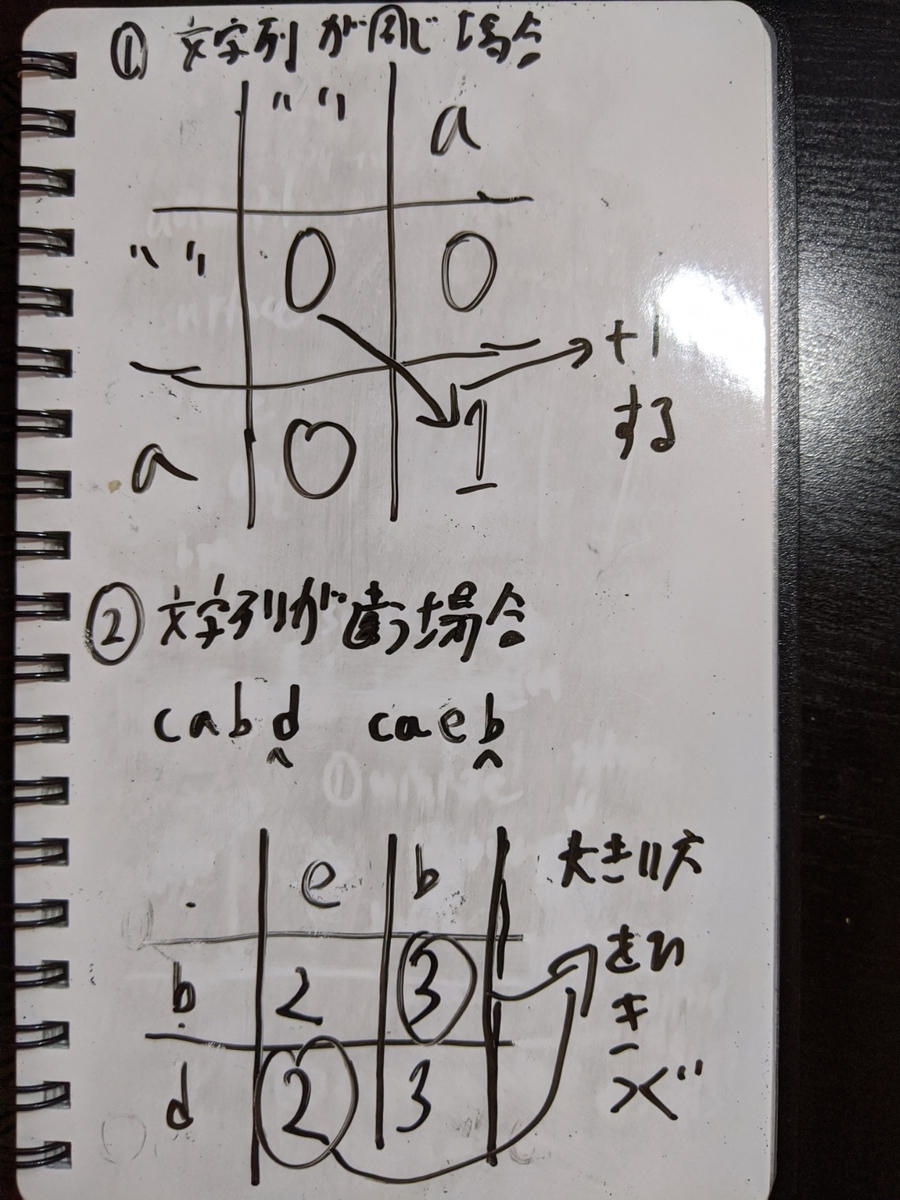 ① 文字列が同じ場合
"" a
"" 0 0
+1
する
a 0 1
② 文字列が違う場合
cabd caeb
^ ^
大きい方
e b
をひ
b 2 3
き
つぐ
d 2 3